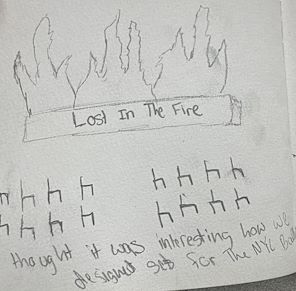 Lost In The Fire
thought it was interesting how we
designed set for The NYC